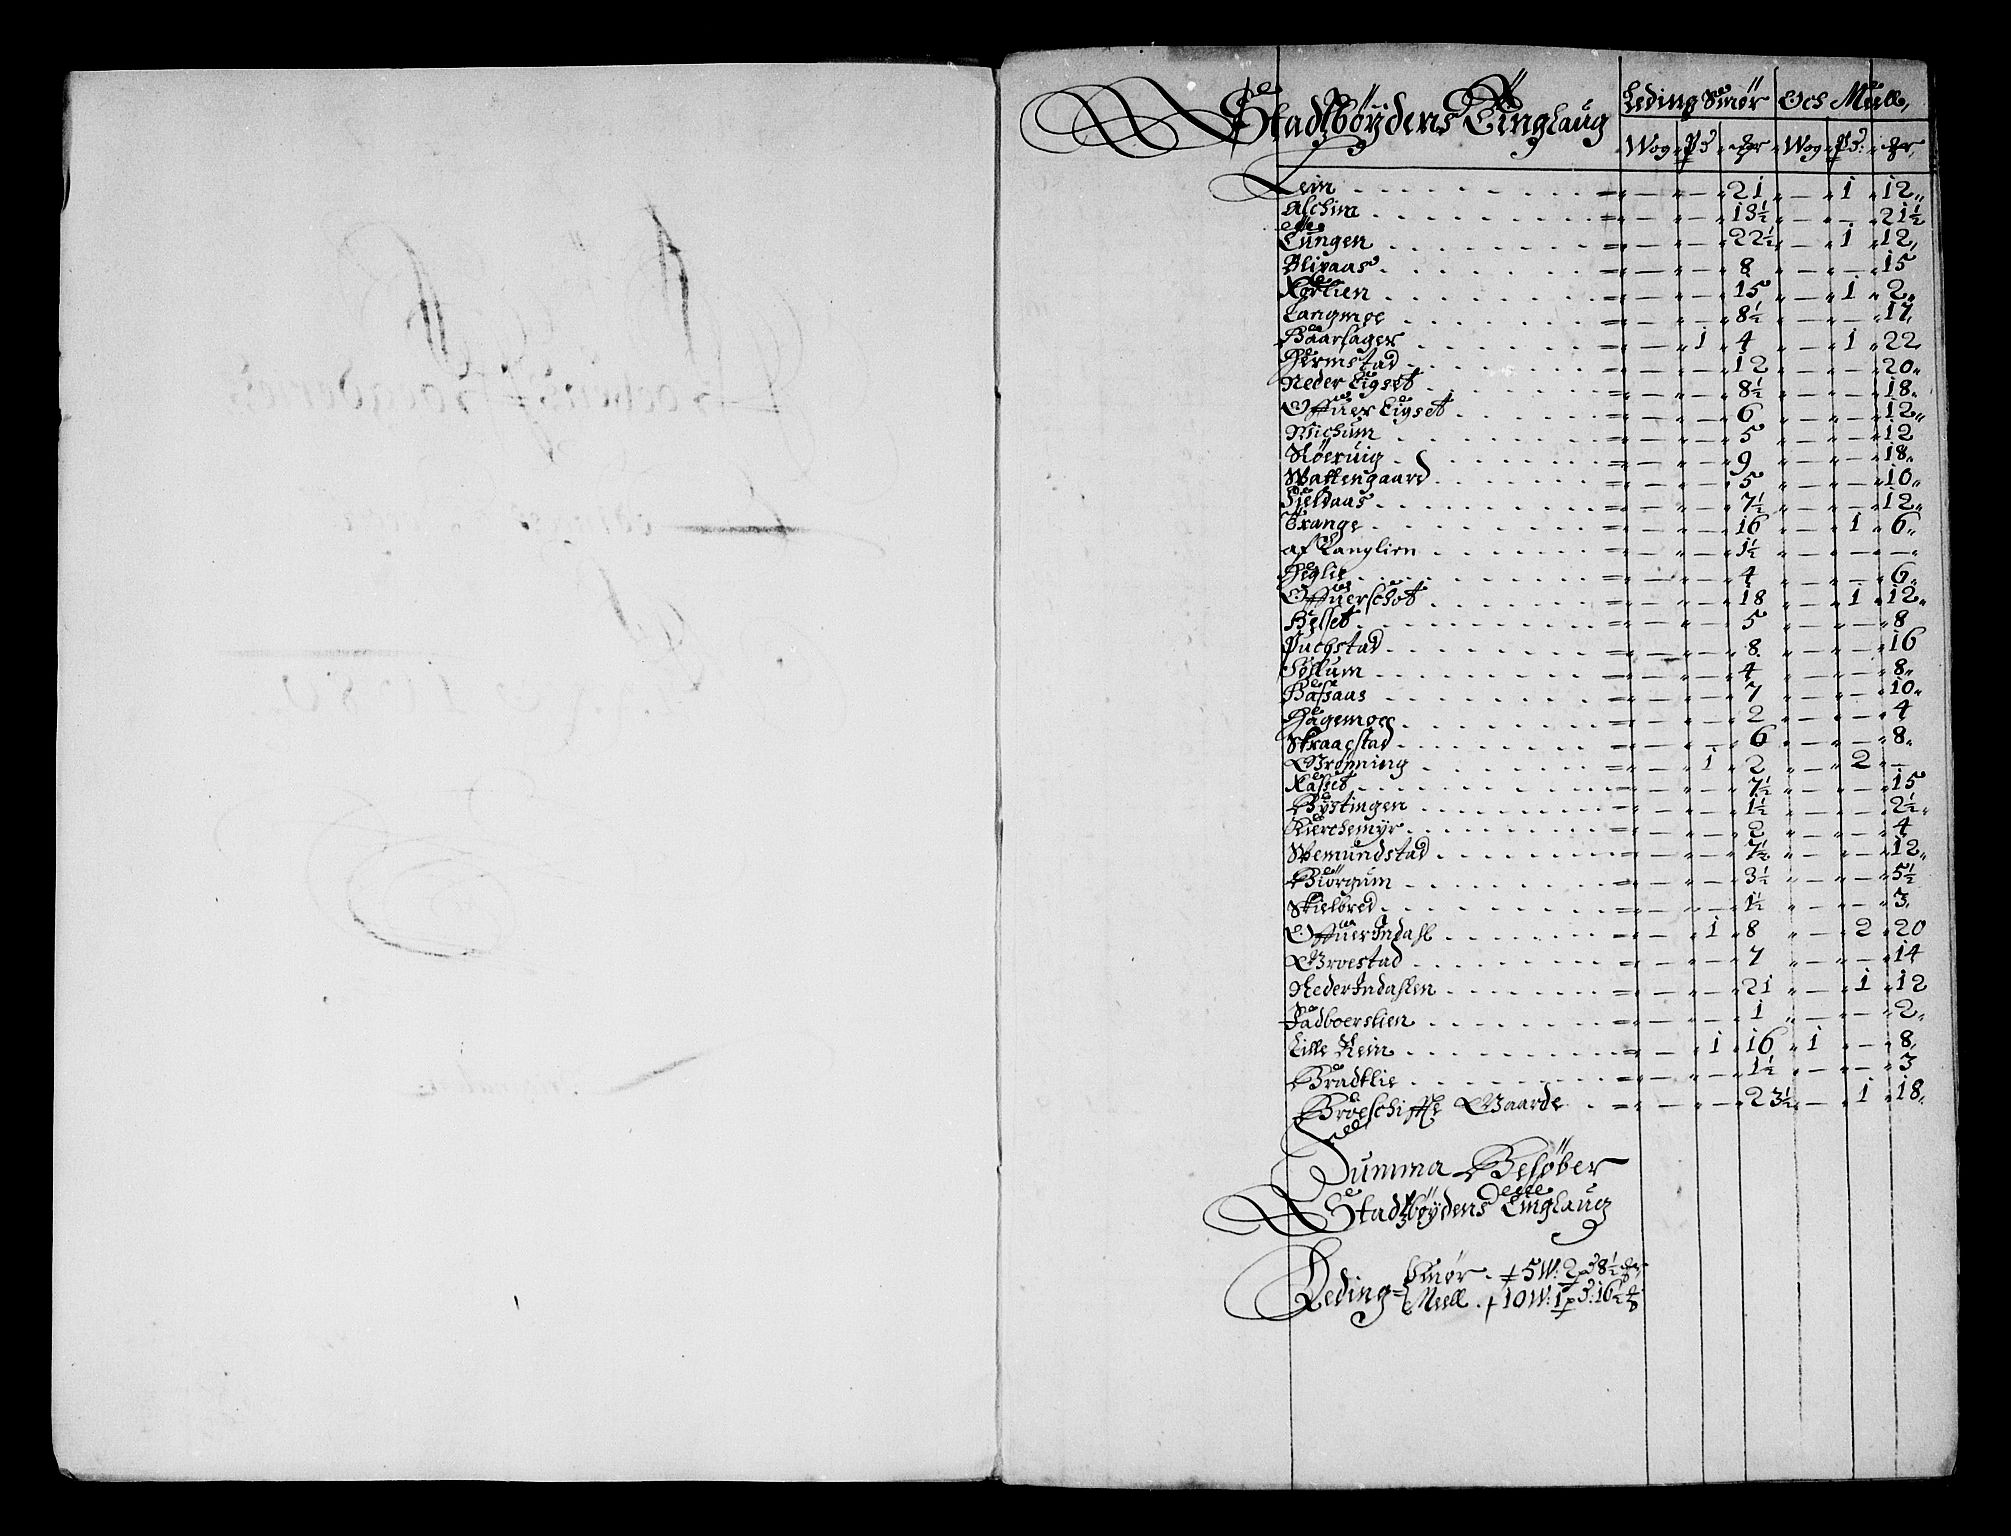 Stadsbøÿdens Tinglaug
Leding Smør Och Meell,
Wog Pd Mr Wog Pd: Mr,
Rein - - 21 - 1 12
Alchim - - 13½ - - 21½
Lüngen - - 22½ - 1 12
Blixaas - - 8 - - 15
Rødlien - - 15 - 1 2
Langmoe - - 8½ - - 17
Haarsager - 1 4 - 1 22
Hermstad - - 12 - - 20
Neder Eigset - - 8½ - - 18
Offüer Eigset - - 6 - - 12
Michum - - 5 - - 12
Røeruig - - 9 - - 18
Wattengaard - - 5 - - 10
Fieldaas - - 7½ - - 12
Trange - - 16 - 1 6
af Langlien - - 1½ - - -
Heglie - - 4 - - 6
Offüerschot - - 18 - 1 12
Helset - - 5 - - 8
Puchstad - - 8 - - 16
Solium - - 4 - - 8
Hassaas - - 7 - - 10
Hagemoe - - 2 - - 4
Skraastad - - 6 - - 8
Grønning - 1 2 - 2 -
Rasset - - 7½ - - 15
Bÿstingen - - 1½ - - 2½
Kierchemÿr - - 2 - - 4
Wemundstad - - 7½ - - 12
Biørgum - - 3½ - - 5½
Skielbred - - 1½ - - 3
Offüer Indahl - 1 8 - 2 20
Groestad - - 7 - - 14
Neder Indahlen - - 21 - 1 12
Fadboerslien - - 1 - - 2
Lille Rein - 1 16 1 - 8
Bradtlie - - 1½ - - 3
Broeschifte Gaarde - - 23½ - 1 18
Summa Beløber
Stadsbøÿdens Tinglaug
Leding Smør 5 W: 2 pd 8½ mr
Meell 10 W: 1 pd: 16½ mr